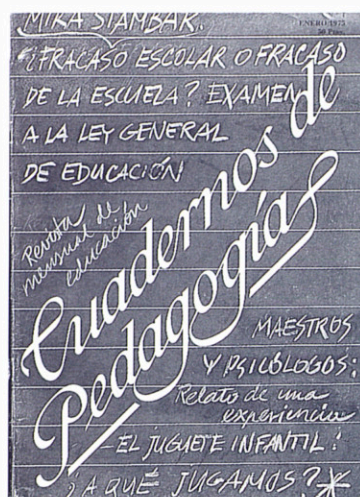 MIKA STAMBAK.
ENERO 1975
50 Ptas.
"¿FRACASO ESCOLAR O FRACASO
DE LA ESCUELA? EXAMEN
A LA LEY GENERAL
DE EDUCACIÓN
Revista
mensual de
educación
Cuadernos de
Pedagogía
MAESTROS
Y PSICÓLOGOS:
Relato de una
experiencia
EL JUGUETE INFANTIL:
¿A QUÉ JUGAMOS?